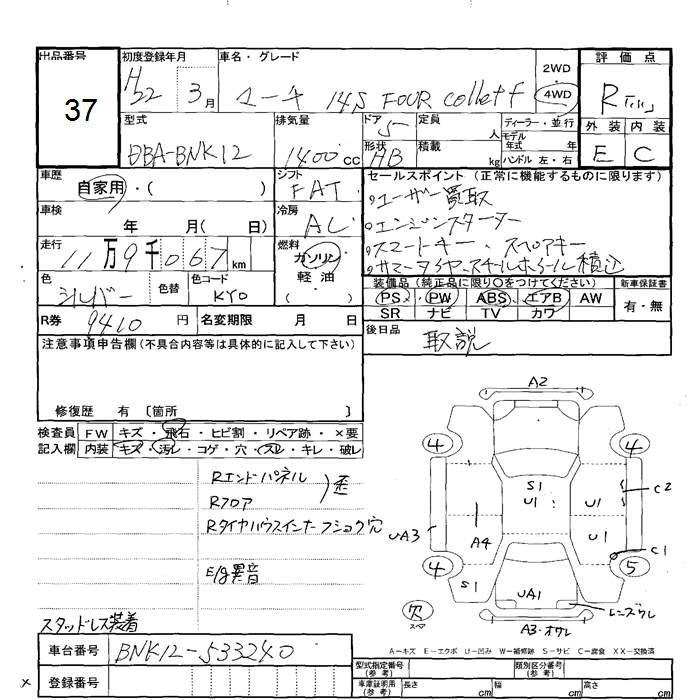 出品番号
37
初度登録年月
H22 3月
車名・グレード
マーチ 14S FOUR Collet f
2WD
4WD
評価点
R
外装 内装
E C
型式
DBA-BNK12
排気量
1400cc
ドア 5
形状 HB
定員 人
積載 kg
ディーラー・並行
モデル年式 年
ハンドル 左・右
車歴
自家用・( )
シフト
FAT
車検
年 月( 日)
冷房
AC
走行
11万9千067km
燃料
ガソリン
軽油
色
シルバー
色替
色コード
KY0
R券
9410円
名変期限 月 日
セールスポイント(正常に機能するものに限ります)
ユーザー買取
エンジンスターター
スマートキー、スペアキー
サマータイヤスチールホイール積込
装備品(純正品に限り○をつけてください)
PS・PW・ABS・エアB・AW
SR ナビ TV カワ
新車保証書
有・無
後日品
取説
注意事項申告欄(不具合内容等は具体的に記入して下さい)
修復歴 有 〔箇所 〕
検査員記入欄
FW キズ・飛石・ヒビ割・リペア跡・×要
内装 キズ・汚レ・コゲ・穴・スレ・キレ・破レ
Rエンドパネル
Rフロア
歪
Rタイヤハウスインナープション穴
E/g異音
スタッドレス装着
A2
4
4
S1
U1
U1
C2
UA3
A4
U1
C1
4
5
S1
UA1
レンズワレ
欠
スペア
A3・オワレ
A-キズ E-エクボ U-凹み W-補修跡 S-サビ C-腐食 XX-交換済
車台番号
BNK12-533240
×
登録番号
型式指定番号(参考)
類別区分番号(参考)
車庫証明用(参考)
長さ cm
幅 cm
高さ cm